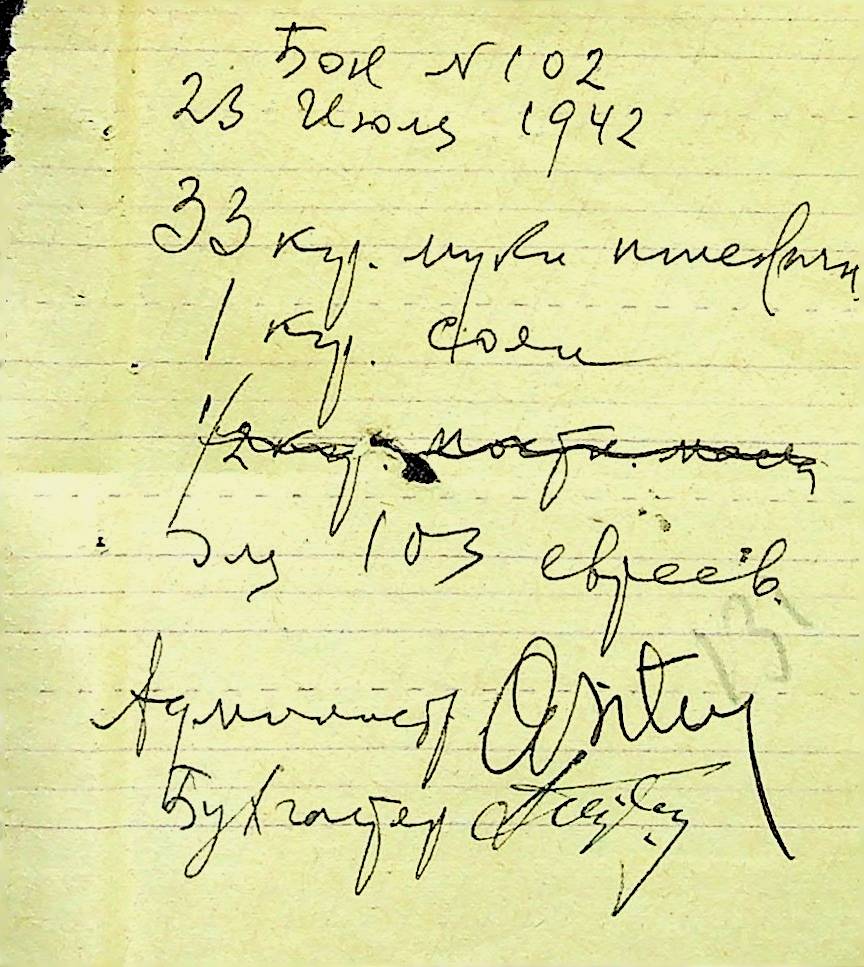 Бон № 102
23 Июля 1942
33 кгр. муки пшеничн.
1 кгр. соли
1/2 кгр. постн. масла
для 103 евреев.
131
Администр
Бухгалтер